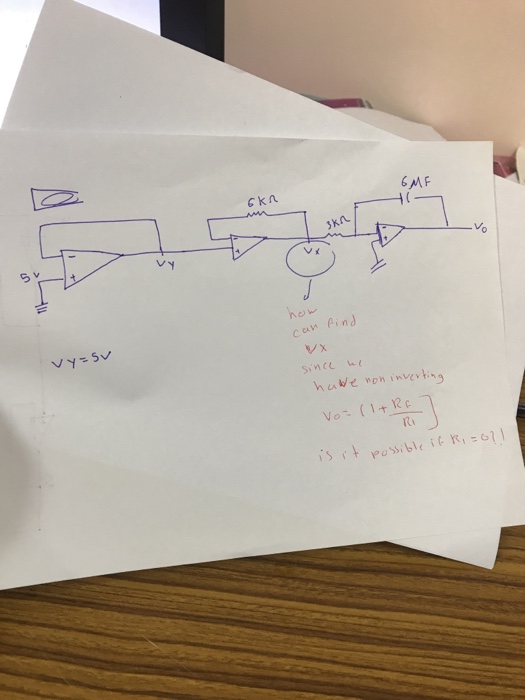 6KΩ
6MF
3KΩ
5V
-
+
VY
+
Vx
-
+
Vo
VY=5V
how
can find
Vx
since we
have noninverting
Vo= (1+ RF/R1]
is it possible if R1=0?!